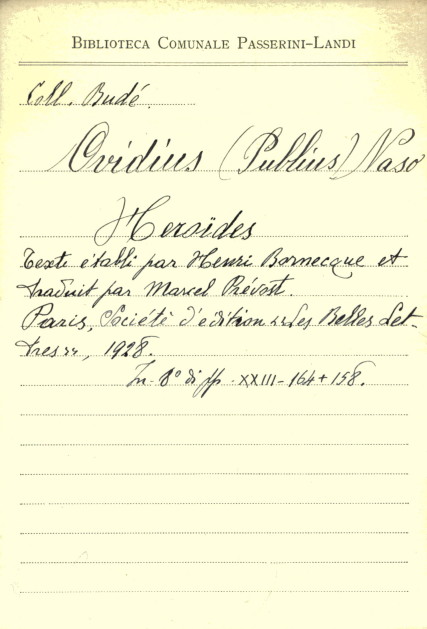 BIBLIOTECA COMUNALE PASSERINI-LANDI
Coll. Budé.
Ovidius (Publius) Naso
Heroïdes
Texte établi par Henri Bornecque et
traduit par Marcel Prévost.
Paris, Société d'édition «Les Belles Let-
tres», 1928.
In-8° di pp. XXIII-164+158.